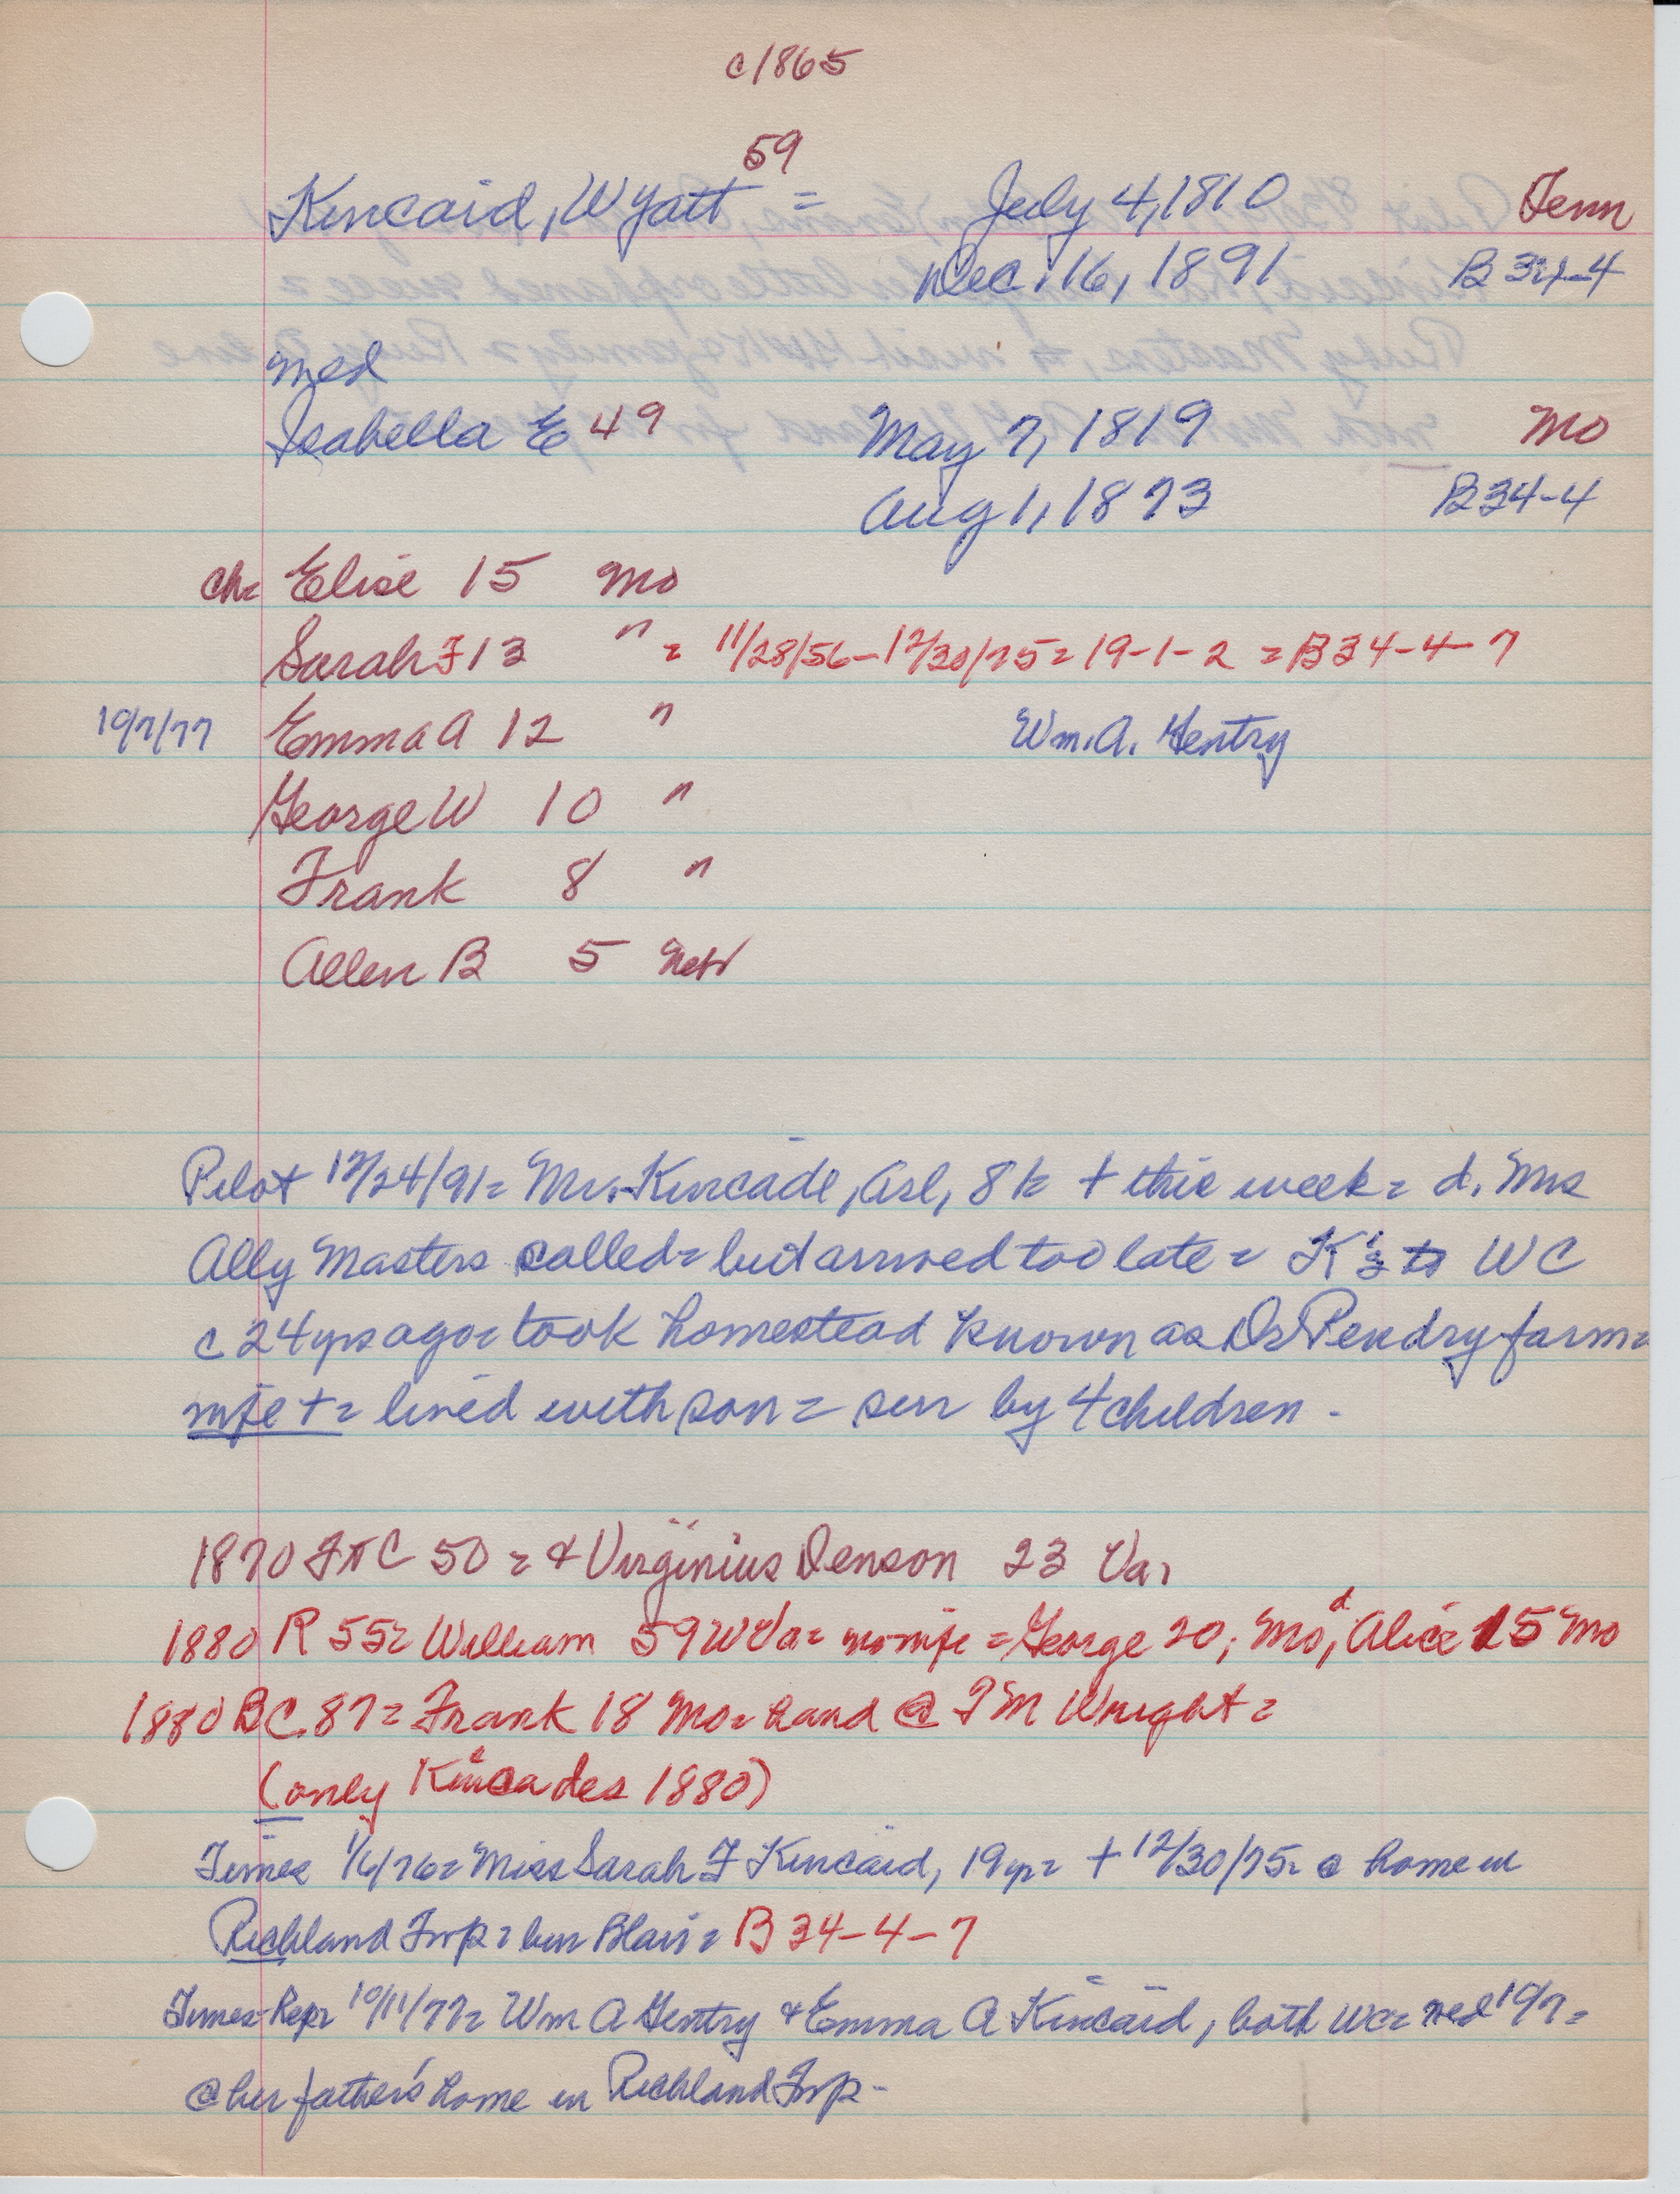 c1865
59
Kincaid, Wyatt = July 4, 1810 Tenn
Dec. 16, 1891 B 34-4
med
Isabella E 49 May 7, 1819 Mo
Aug 1, 1873 B34-4
ch= Elise 15 Mo
Sarah F 13 " = 11/28/56-12/30/75=19-1-2 =B34-4-7
10/7/77 Emma A 12 " Wm. A. Gentry
George W 10 "
Frank 8 "
Allen B 5 Neb
Pilot 12/24/91= Mr. Kincade, Arl, 8k + this week= d. Mrs
Ally Masters called= but arrived too late = K's to WC
c 24 yrs ago= took homestead known as Dr Pendry farm=
wife += lived with son = surv by 4 children -
1870 FtC 50 = & Virginius Denson 23 Va,
1880 R 55= William 59 WVa= no wife = George 20, Mo, d Alice 15 Mo
1880 BC 87= Frank 18 Mo= hand @ T M Wright =
(only Kincades 1880)
Times 1/6/76= Miss Sarah F Kincaid, 19 yr= + 12/30/75= @ home in
Richland Twp = bur Blair = B 34-4-7
Times-Repr 10/11/77= Wm A Gentry & Emma A Kincaid, both WC= med 10/7=
@ her father's home in Richland Twp-